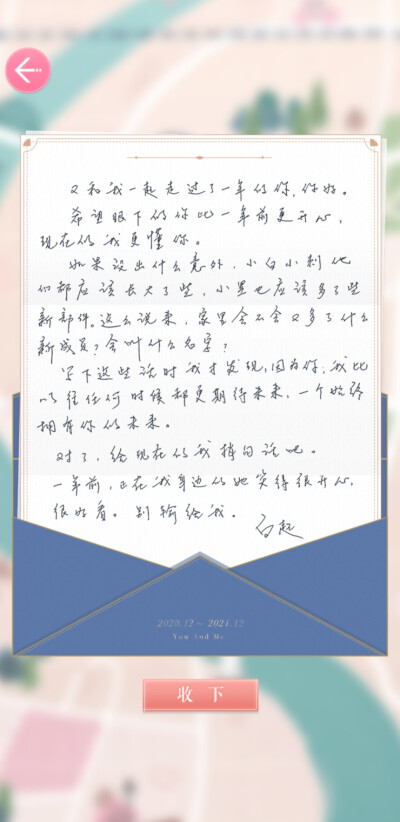 又和我一起走过了一年的你,你好。
希望眼下的你比一年前更开心,
现在的我更懂你。
如果没出什么意外,小白小刺他
们都应该长大了些,小黑也应该多了些
新部件。这么说来,家里会不会又多了什么
新成员?会叫什么名字?
写下这些话时我才发现,因为你,我比
以往任何时候都更期待未来,一个始终
拥有你的未来。
对了,给现在的我捎句话吧。
一年前,正在我身边的她笑得很开心,
很好看。别输给我。
白起
2020.12~2021.12
You And Me
收下